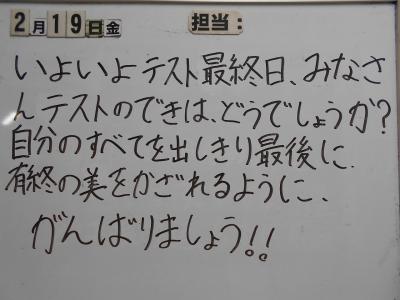 2月19日金 担当:
いよいよテスト最終日、みなさ
んテストのできは、どうでしょうか?
自分のすべてを出しきり最後に
有終の美をかざれるように、
がんばりましょう!!